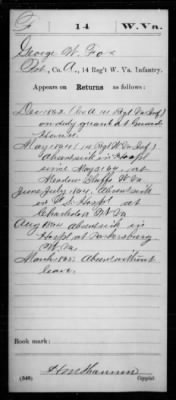 F 14 W. Va.
George W. Fox
Pvt, Co. A, 14 Reg't W. Va. Infantry.
Appears on Returns as follows:
Dec 1862 (Co A 14 Regt Va Inf)
on duty guard at
May 1864 14 Regt W Va Inf)
Absent sick in Hospl
since May 2/64, at
Meadow Bluffs W Va
June & July 1864, Absent sick
in U.S. Hospl at
Charleston W Va
Aug 1864 absent sick in
Hospl at Parkersburg
W. Va.
March 1865 Absent without
leave.
Book mark:
(546) Copyist.